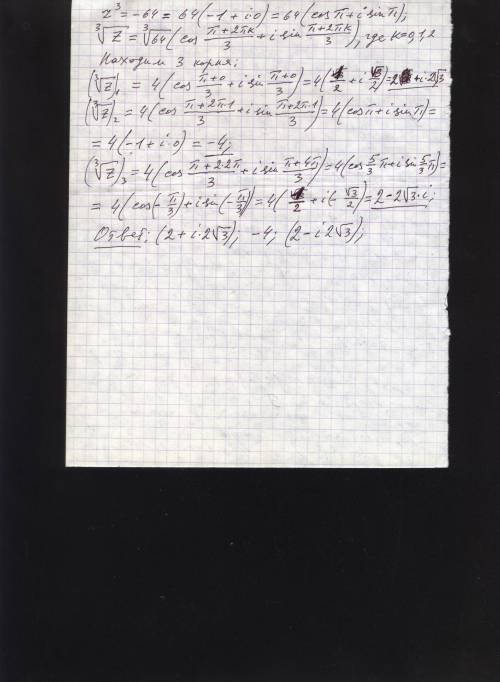 z³ = -64 = 64(-1 + i·0) = 64(cos π + i sin π);
∛z = ∛64 (cos (π+2πk)/3 + i sin (π+2πk)/3), где k=0,1,2
Находим 3 корня:
(∛z)₁ = 4(cos (π+0)/3 + i sin (π+0)/3) = 4(1/2 + i √3/2) = 2 + i·2√3
(∛z)₂ = 4(cos (π+2π·1)/3 + i sin (π+2π·1)/3) = 4(cos π + i sin π) =
= 4(-1 + i·0) = -4;
(∛z)₃ = 4(cos (π+2·2π)/3 + i sin (π+4π)/3) = 4(cos 5/3 π + i sin 5/3 π) =
= 4(cos(-π/3) + i sin(-π/3)) = 4(1/2 + i(-√3/2)) = 2 - 2√3·i;
Ответ: (2 + i·2√3); -4; (2 - i 2√3);